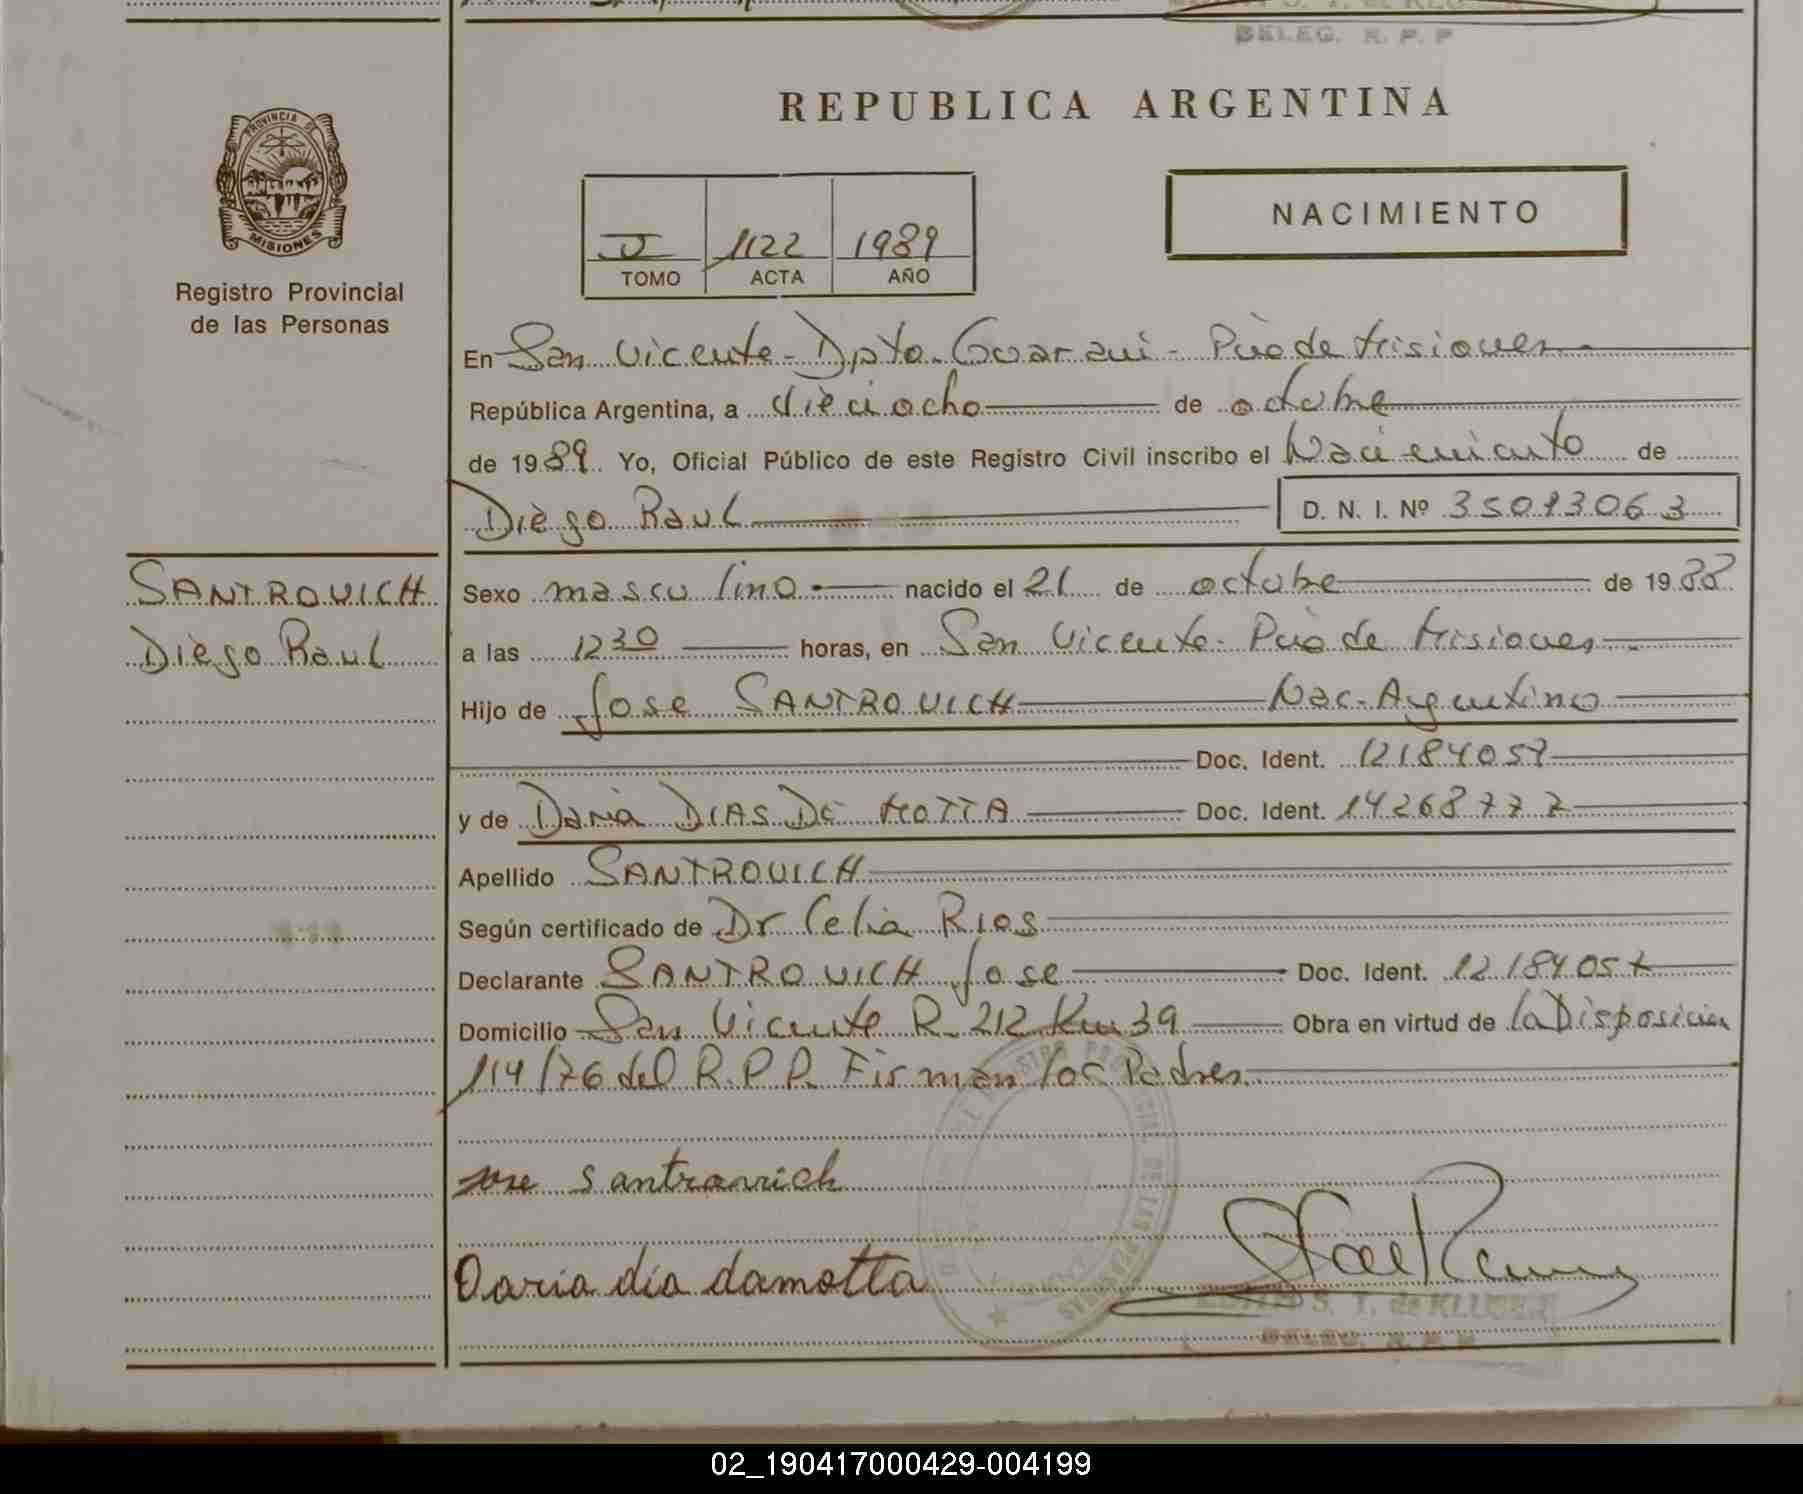 BELEG. R. P. P
REPUBLICA ARGENTINA
PROVINCIA DE
MISIONES
Registro Provincial
de las Personas
NACIMIENTO
1122 1989
TOMO ACTA AÑO
En San Vicente - Dpto. Guarani - Pcia de Misiones
República Argentina, a dieciocho de octubre
de 1989. Yo, Oficial Público de este Registro Civil inscribo el Nacimiento de
Diego Raul D. N. I. Nº 35013063
SANTROVICH
Diego Raul
Sexo masculino nacido el 21 de octubre de 1988
a las 12 30 horas, en San Vicente - Pcia de Misiones
Hijo de Jose SANTROVICH Nac. Argentino
Doc. Ident. 12184057
y de Daria DIAS DE MOTTA Doc. Ident. 14268777
Apellido SANTROVICH
Según certificado de Dr Celia Rios
Declarante SANTROVICH Jose Doc. Ident. 12184057
Domicilio San Vicente R. 212 Km 39 Obra en virtud de la Disposicion
114/76 del R.P.P. Firman los Padres
jose santrovich
Daria dia damotta
S. T. de KLUSER
BELEG. R. P. P.
02_190417000429-004199